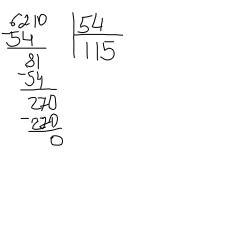 6210 54
-54 115
81
-54
270
-270
0